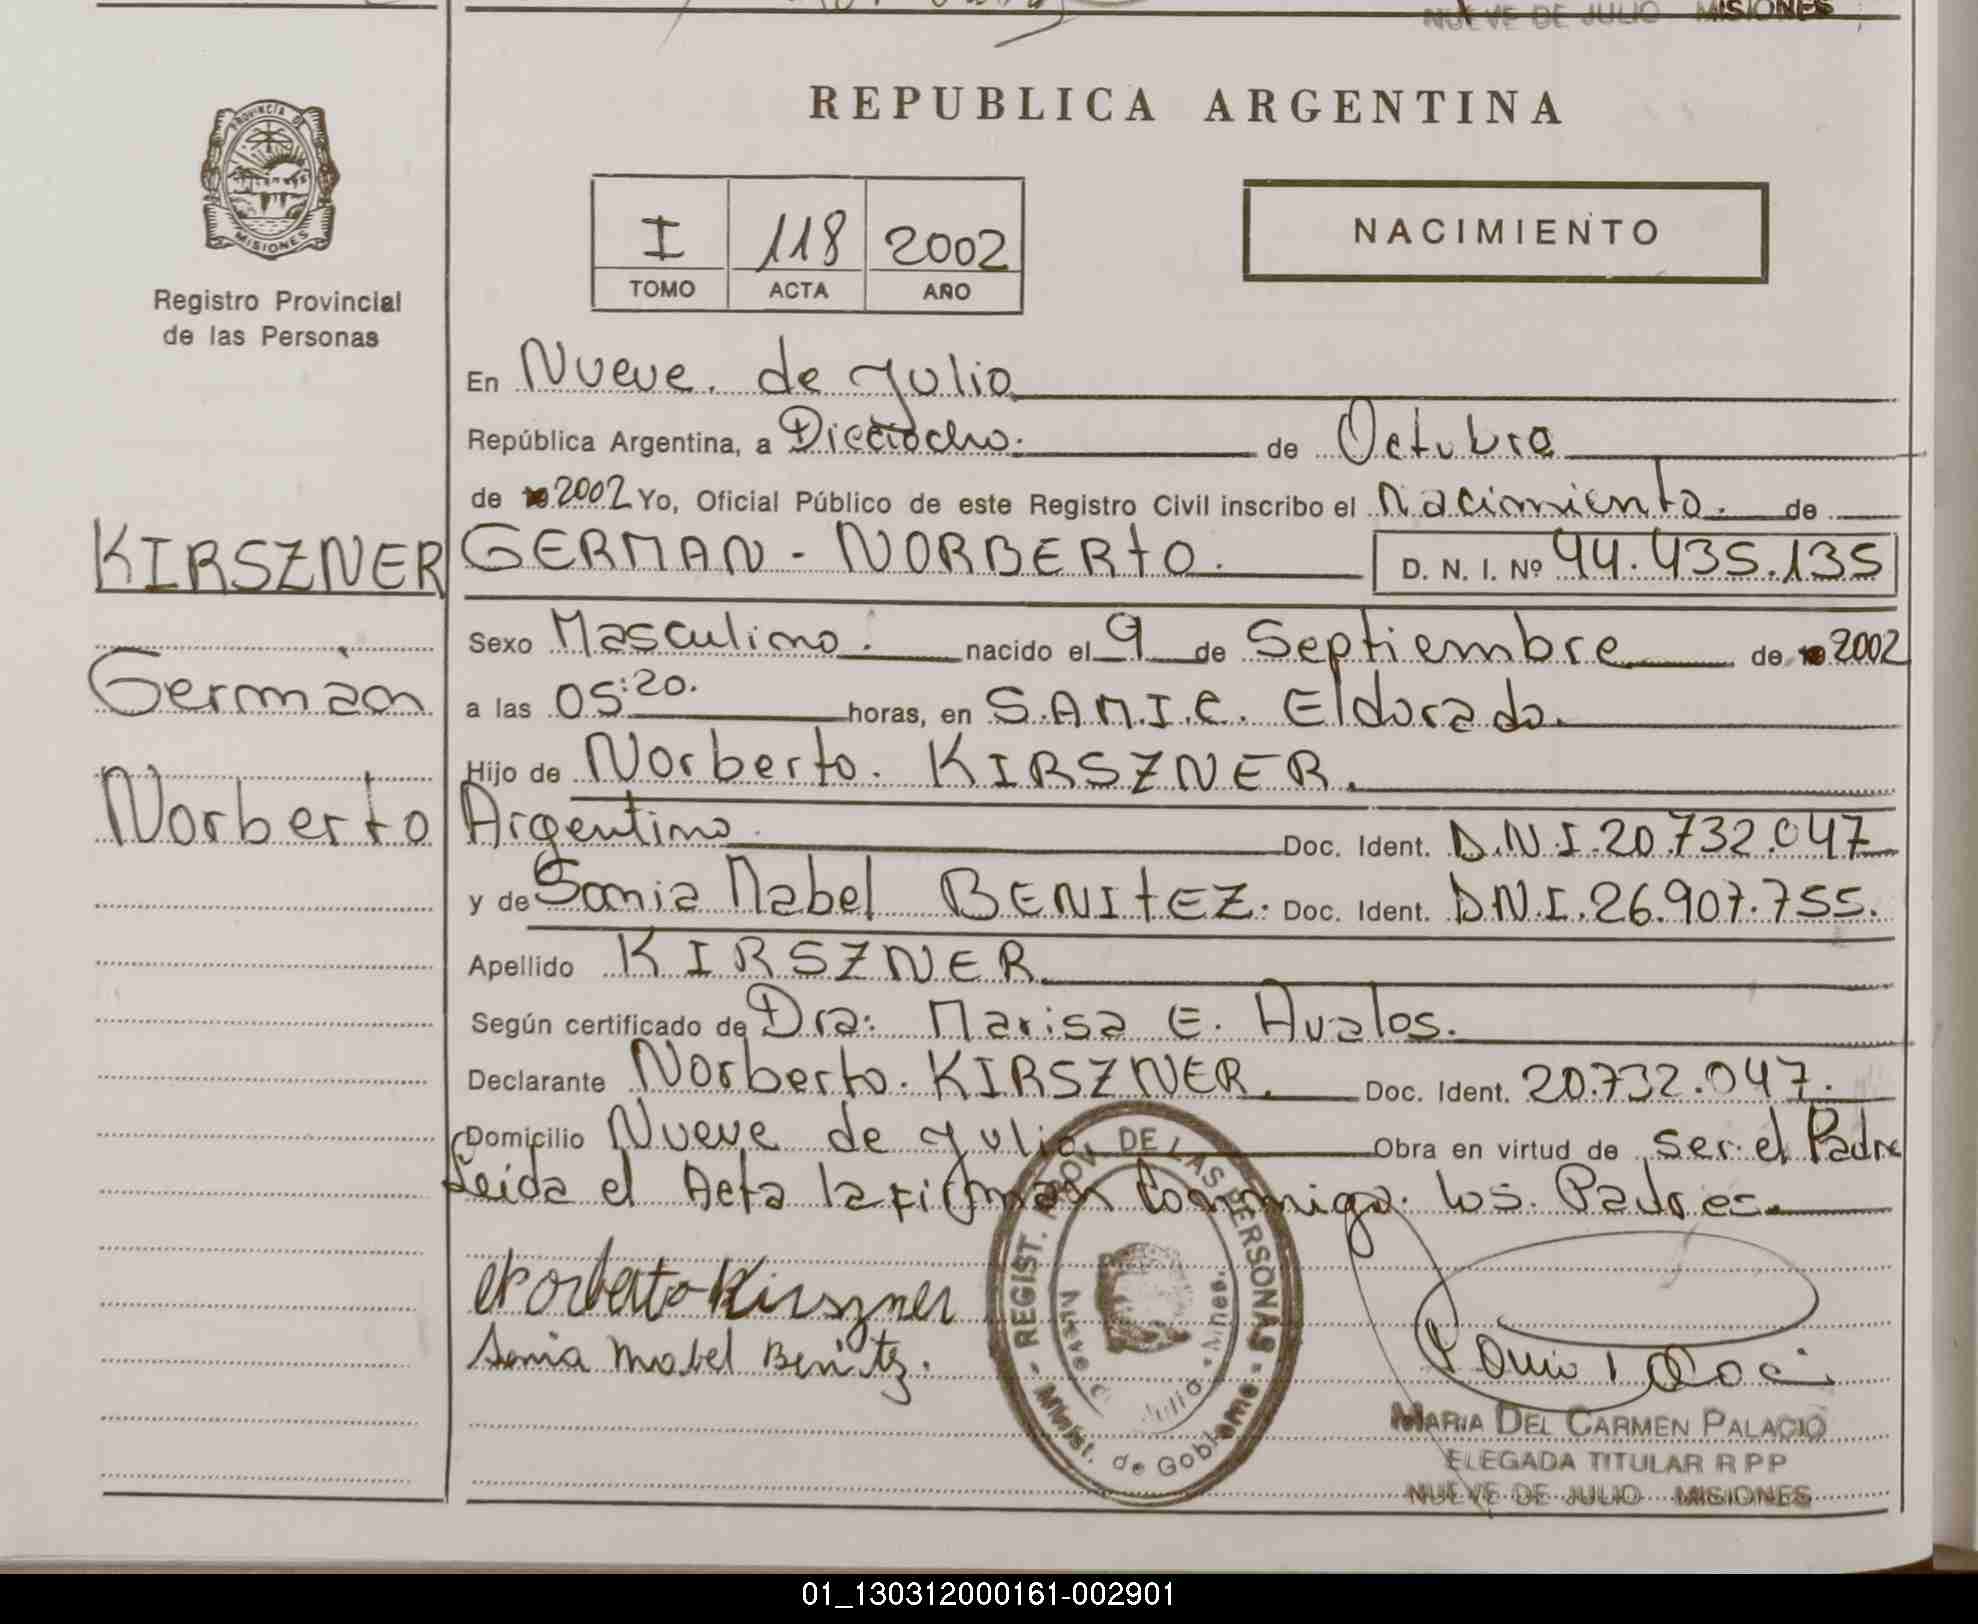 NUEVE DE JULIO MISIONES
REPUBLICA ARGENTINA
PROVINCIA DE
MISIONES
Registro Provincial
de las Personas
I 118 2002
TOMO ACTA AÑO
NACIMIENTO
En Nueve. de Julio
República Argentina, a Dieciocho. de Octubre
de 2002 Yo, Oficial Público de este Registro Civil inscribo el Nacimiento. de
KIRSZNER GERMAN - NORBERTO. D. N. I. Nº 44.435.135
Sexo Masculino. nacido el 9 de Septiembre de 2002
Germán a las 05:20. horas, en S.A.M.I.C. Eldorado.
Hijo de Norberto. KIRSZNER.
Norberto Argentino. Doc. Ident. D.N.I.20.732.047
y de Sonia Mabel BENITEZ. Doc. Ident. D.N.I.26.907.755.
Apellido KIRSZNER
Según certificado de Dra: Marisa E. Avalos.
Declarante Norberto. KIRSZNER. Doc. Ident. 20.732.047.
Domicilio Nueve de Julio Obra en virtud de ser el Padre
Leida el Acta la firman conmigo. los. Padres.
Norberto Kirszner
Sonia Mabel Benitez.
REGIST. PROV. DE LAS PERSONAS
Minist. de Gobierno
Nueve de Julio - Mnes.
MARIA DEL CARMEN PALACIO
ELEGADA TITULAR R P P
NUEVE DE JULIO MISIONES
01_130312000161-002901